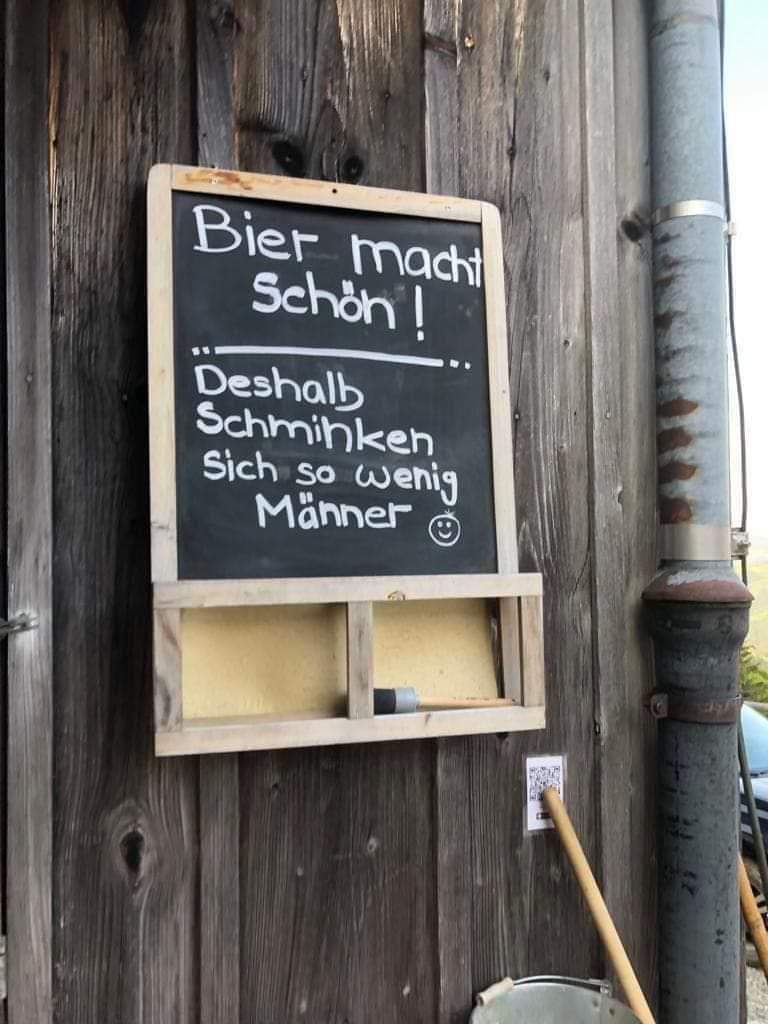 Bier macht
Schön!
Deshalb
Schminken
Sich so wenig
Männer